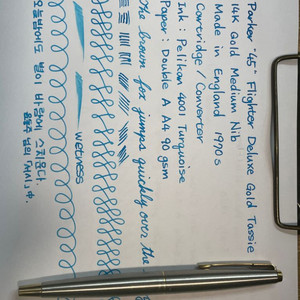 Parker "45" Flighter Deluxe Gold Tassie
14K Gold Medium Nib
Made in England 1970s
Cartridge / Converter
Ink : Pelikan 4001 Turquoise
Paper : Double A A4 90 gsm
The brown fox jumps quickly over the
wetness
오늘밤에도 별이 바람에 스치운다.
윤동주 님의